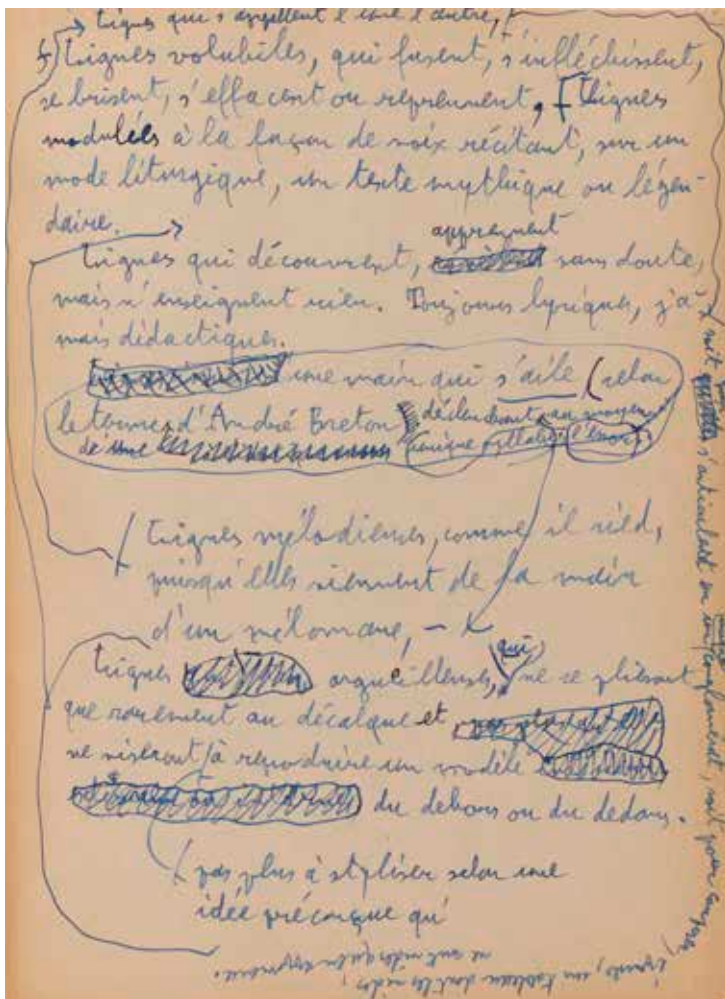 Lignes qui s'appellent l'une l'autre,
Lignes volubiles, qui fusent, s'infléchissent,
se brisent, s'effacent ou reprennent, Lignes
modulées à la façon de voix récitant, sur un
mode liturgique, un texte mythique ou légen-
daire.
apprennent
Lignes qui découvrent, sans doute,
mais n'enseignent rien. Toujours lyriques, ja-
mais didactiques.
une main qui s'aile (selon
le terme d'André Breton)
de une
Lignes mélodieuses, comme il sied,
puisqu'elles viennent de la main
d'un mélomane, –
qui,
Lignes orgueilleuses, ne se pliant
que rarement au décalque et
ne visant à reproduire un modèle
du dehors ou du dedans.
pas plus à styliser selon une
idée préconçue qu'
soit s'articulent en un conglomérat, soit pour
un tableau dont les vides,
ne sont vides qu'en apparence.